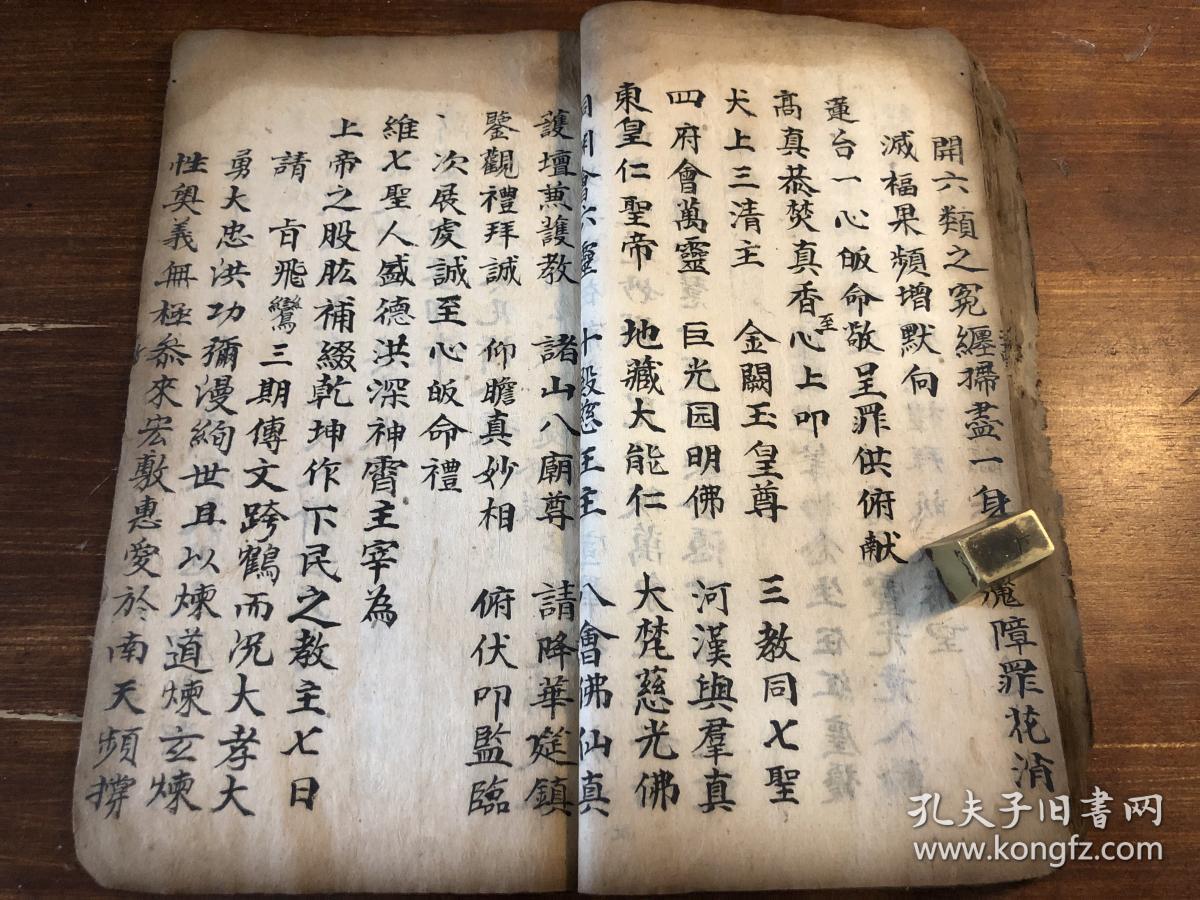 開六類之冤纏掃盡一身魔障罪花消
滅福果頻增默向
蓮台一心皈命敬呈罪供俯献
高真恭焚真香至心上叩
大上三清主 金闕玉皇尊 三教同七聖
四府會萬靈 巨光园明佛 河漢與羣真
東皇仁聖帝 地藏大能仁 大梵慈光佛
會六靈 十殿慈王主 八會佛仙真
護壇兼護教 諸山八廟尊 請降華筵鎮
鑒觀禮拜誠 仰瞻真妙相 俯伏叩監臨
、次展虔誠至心皈命禮
維七聖人盛德洪深神霄主宰為
上帝之股肱補綴乾坤作下民之教主七日
請 旨飛鸞三期傳文跨鶴而况大孝大
勇大忠洪功彌漫絢世且以煉道煉玄煉
性奥義無極叅來宏敷惠愛於南天頻撐
孔夫子旧書网
www.kongfz.com